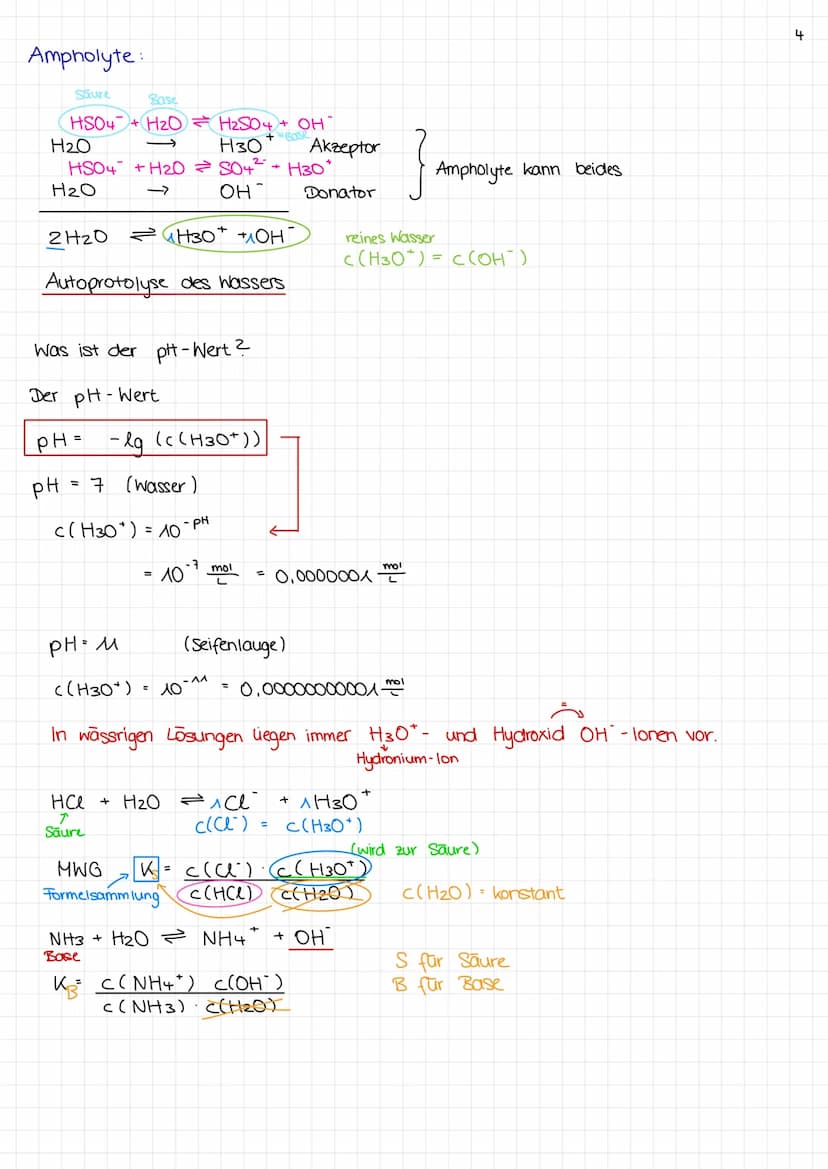 4
Ampholyte:
Säure Base
HSO4⁻ + H2O ⇌ H2SO4 + OH⁻
H2O → H3O⁺ Akzeptor
HSO4⁻ + H2O ⇌ SO4²⁻ + H3O⁺
H2O → OH⁻ Donator
Ampholyte kann beides
2H2O ⇌ 1H3O⁺ + 1OH⁻
reines Wasser
c(H3O⁺) = c(OH⁻)
Autoprotolyse des Wassers
Was ist der pH-Wert?
Der pH-Wert
pH = -lg (c(H3O⁺))
pH = 7 (Wasser)
c(H3O⁺) = 10^-pH
= 10^-7 mol/L = 0,0000001 mol/L
pH = 11 (Seifenlauge)
c(H3O⁺) = 10^-11 = 0,00000000001 mol/L
In wässrigen Lösungen liegen immer H3O⁺- und Hydroxid = OH⁻-Ionen vor.
Hydronium-Ion
HCl + H2O ⇌ 1Cl⁻ + 1H3O⁺
Säure c(Cl⁻) = c(H3O⁺)
(wird zur Säure)
MWG Ks = c(Cl⁻) · c(H3O⁺)
Formelsammlung c(HCl) c(H2O) c(H2O) = konstant
NH3 + H2O ⇌ NH4⁺ + OH⁻
Base
S für Säure
KB = c(NH4⁺) c(OH⁻)
B für Base
c(NH3) · c(H2O)